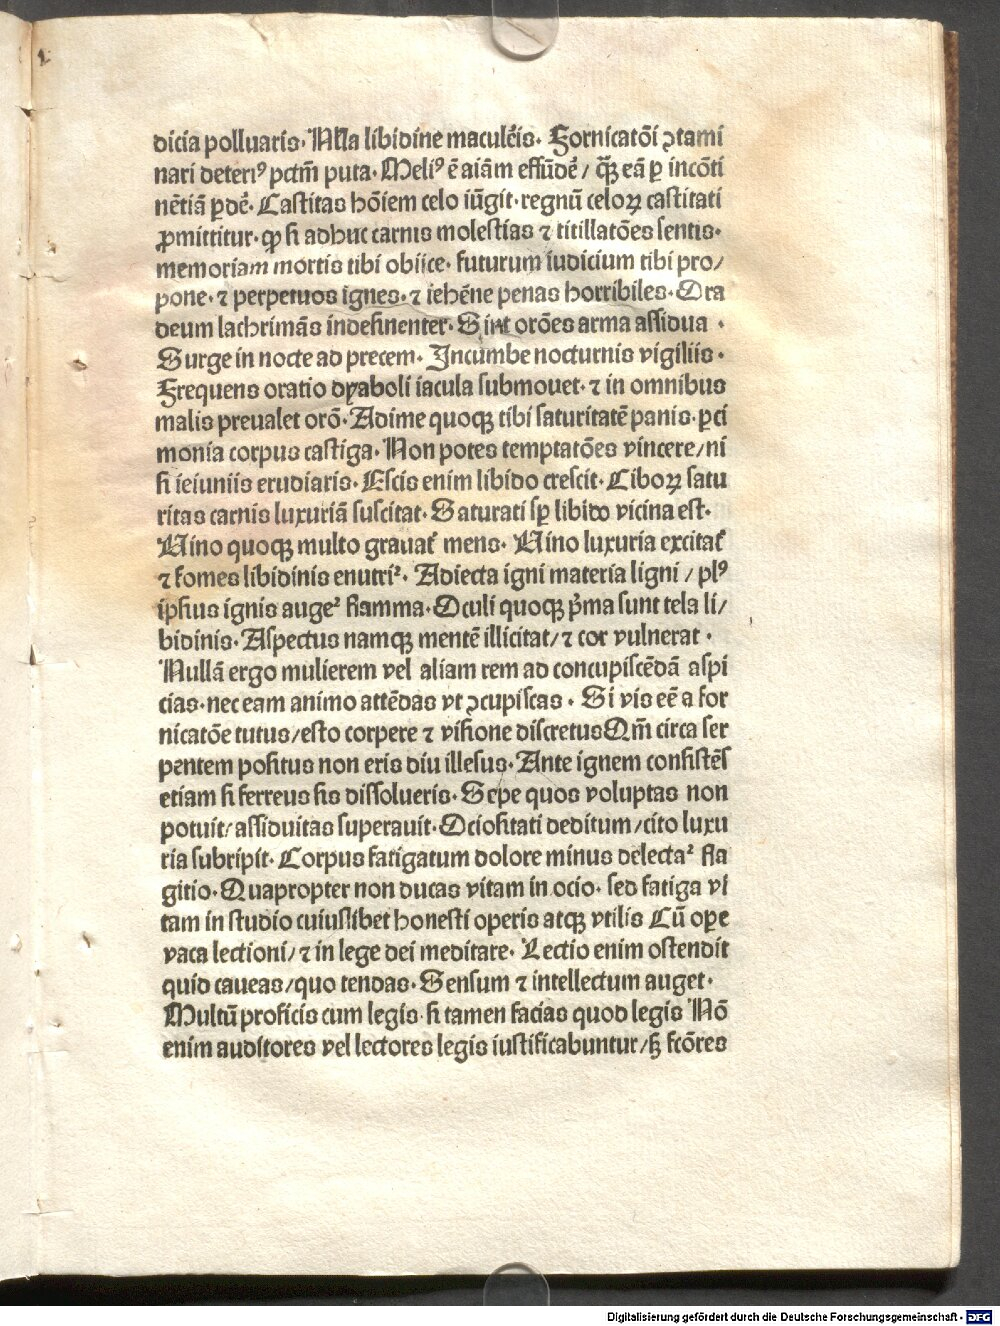 dicia polluaris· Nl̄la libidine maculēis· Fornicatōi ꝯtami
nari deteriꝰ pctm̄ puta· Meliꝰ ē aiām effūdē / q̄ꝫ eā ꝑ incōti
nētiā ꝑdē· Castitas hōiem celo iūgit· regnū celoꝝ castitati
ꝓmittitur· ꝙ si adhuc carnis molestias ⁊ titillatōes sentis·
memoriam mortis tibi obiice· futurum iudicium tibi pro/
pone· ⁊ perpetuos ignes· ⁊ iehēne penas horribiles· Ora
deum lachrimās indefinenter· Sint orōes arma assidua ·
Surge in nocte ad precem· Incumbe nocturnis vigiliis·
Frequens oratio dyaboli iacula submouet· ⁊ in omnibus
malis preualet orō· Adime quoqꝫ tibi saturitatē panis· ꝑci
monia corpus castiga· Non potes temptatōes vincere/ ni
si ieiuniis erudiaris· Escis enim libido crescit· Ciboꝝ satu
ritas carnis luxuriā suscitat· Saturati sꝑ libido vicina est·
Vino quoqꝫ multo grauat᷑ mens· Vino luxuria excitat᷑
⁊ fomes libidinis enutri᷑· Adiecta igni materia ligni / plꝰ
ipsius ignis auge᷑ flamma· Oculi quoqꝫ p̄ma sunt tela li/
bidinis· Aspectus namqꝫ mentē illicitat/ ⁊ cor vulnerat ·
Nullā ergo mulierem vel aliam rem ad concupiscēdā aspi
cias· nec eam animo attēdas vt ꝯcupiscas · Si vis eē a for
nicatōe tutus/ esto corpere ⁊ visione discretus Qm̄ circa ser
pentem positus non eris diu illesus· Ante ignem consistēs
etiam si ferreus sis dissolueris· Sepe quos voluptas non
potuit/ assiduitas superauit· Ociositati deditum/ cito luxu
ria subripit· Corpus fatigatum dolore minus delecta᷑ fla
gitio· Quapropter non ducas vitam in ocio· sed fatiga vi
tam in studio cuiuslibet honesti operis atqꝫ vtilis Cū oꝑe
vaca lectioni/ ⁊ in lege dei meditare· Lectio enim ostendit
quid caueas/ quo tendas· Sensum ⁊ intellectum auget·
Multū proficis cum legis· si tamen facias quod legis Nō
enim auditores vel lectores legis iustificabuntur/ sꝫ fcōres
Digitalisierung gefördert durch die Deutsche Forschungsgemeinschaft · DFG